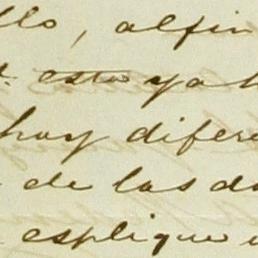 llo, alfin
esto ya h
hay difere
de las do
esplique u